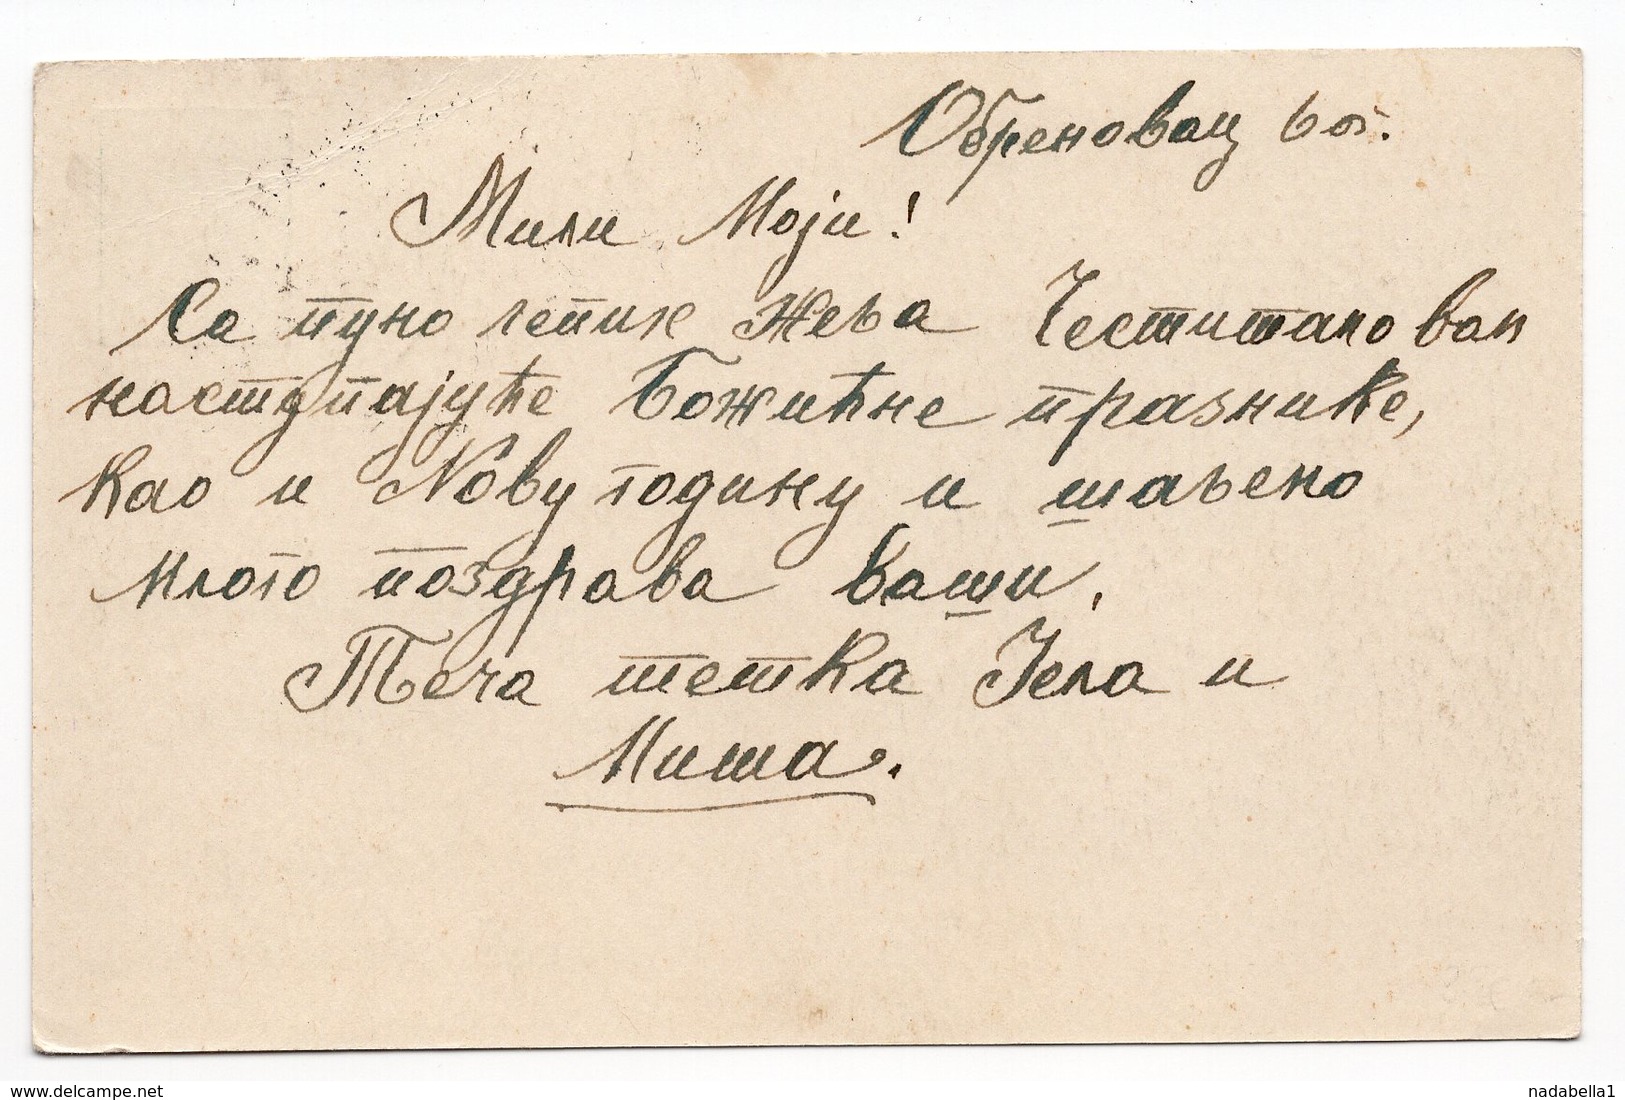 Обреновац
Мили Моји!
Са пуно лепих жеља Честитамо вам
наступајуће Божићне празнике,
као и Нову годину и шаљемо
много поздрава ваши,
Теча тетка Јела и
Миша.
nadabella1
delcampe.net